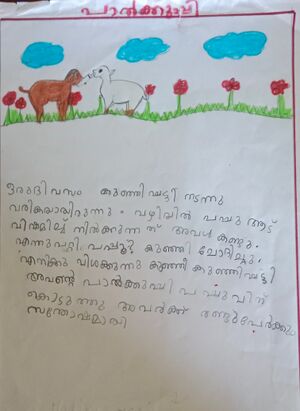 പാൽക്കുപ്പി
ഒരുദിവസം കുഞ്ഞിഷട്ടി നടന്നു
വരികയായിരുന്നു. വഴിയിൽ പശു ആട്
നിൽക്കുന്ന ത് അവൾ കണ്ടു.
എന്തുപറ്റി കുഞ്ഞി ചോദിച്ചു.
എനിക്കു വിശക്കുന്നു
അവന്റെ പാൽക്കുപ്പി പശുവിന്
കൊടുത്തു അവർക്ക് രണ്ടുപേർക്കും
സന്തോഷമായി